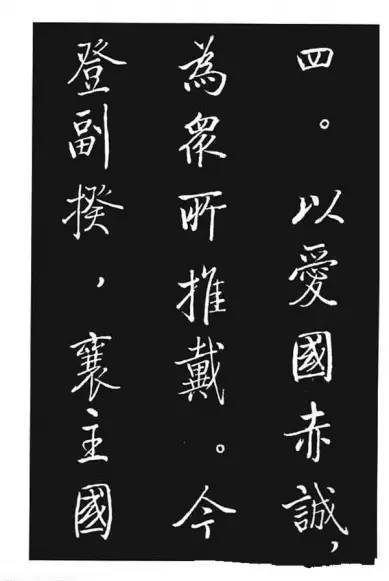 四。以愛國赤誠，
為衆所推戴。今
登副揆，襄主國